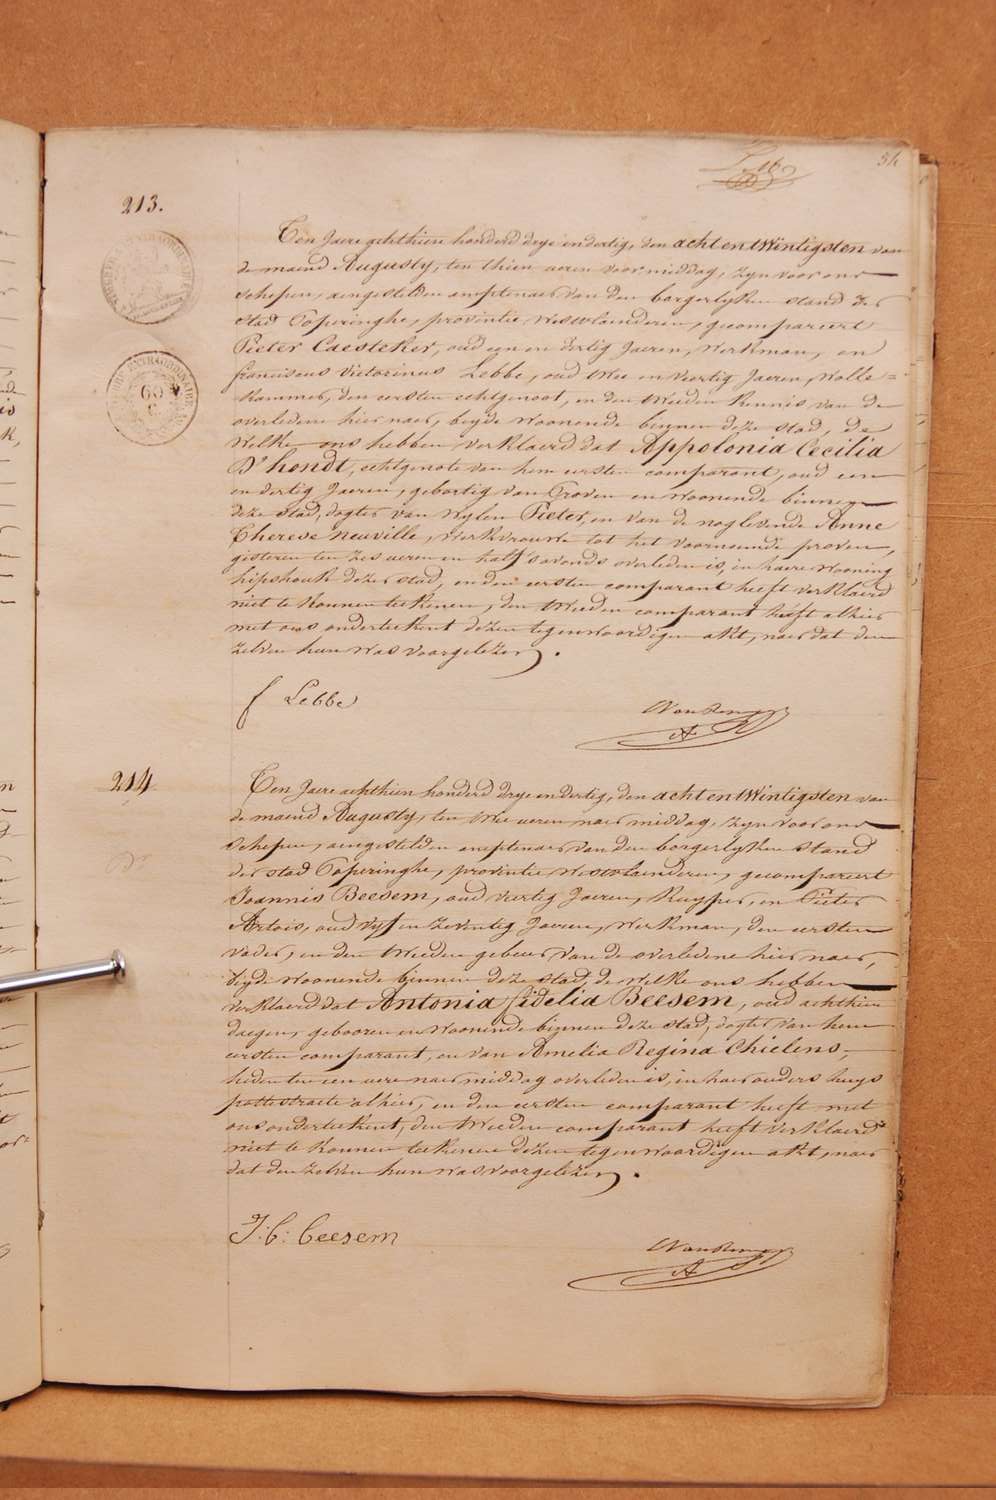 54
213.
Ten Jaere achthien honderd drye endertig, den achtentwintigsten van
de maend Augusty, ten thien ueren voormiddag, zyn voor ons
schepen, aengestelden amptenaer van den borgerlyken stand der
stad Poperinghe, provintie Westvlaenderen, gecompareert
Pieter Caesteker, oud een en dertig Jaeren, Werkman, en
franciscus Victorinus Lebbe, oud twee en veertig Jaeren, Wolle=
kammer, den eersten echtgenoot, en den tweeden kennis van de
overledene hier naer, beyde woonende binnen deze stad, de
Welke ons hebben verklaerd dat Appolonia Cecilia
D'hondt, echtgenote van hem eersten comparant, oud een
en dertig Jaeren, gebortig van Proven en woonende binnen
deze stad, dogter van wylen Pieter, en van de noglevende Anne
Therese Neuville, Werkvrouwe tot het voornoemde proven,
gisteren ten zes ueren en half s'avonds overleden is, in haere wooning
hipshoek dezer stad, en den eersten comparant heeft verklaerd
niet te konnen teekenen, den tweeden comparant heeft alhier
met ons onderteekent dezen tegenwoordigen akt, naer dat den
zelven hun was voorgelezen.
f Lebbe
214
Ten Jaere achthien honderd drye endertig, den achtentwintigsten van
de maend Augusty, ten twee ueren naermiddag, zyn voor ons
schepen, aengestelden amptenaer van den borgerlyken stand
der stad Poperinghe, provintie Westvlaenderen, gecompareert
Joannis Beesem, oud veertig Jaeren, Kuyper, en Pieter
Artois, oud vyf en zeventig Jaeren, Werkman, den eersten
vader, en den tweeden gebuer van de overledene hier naer,
beyde woonende binnen deze stad, de welke ons hebben
verklaerd dat Antonia fidelia Beesem, oud achthien
daegen, gebooren en woonende binnen deze stad, dogter van hem
eersten comparant, en van Amelia Regina Chielens,
heden ten een uere naermiddag overleden is, in haer ouders huys
pottestraete alhier, en den eersten comparant heeft met
ons onderteekent, den tweeden comparant heeft verklaerd
niet te konnen teekenen dezen tegenwoordigen akt, naer
dat den zelven hun was voorgelezen.
J: C: beesem